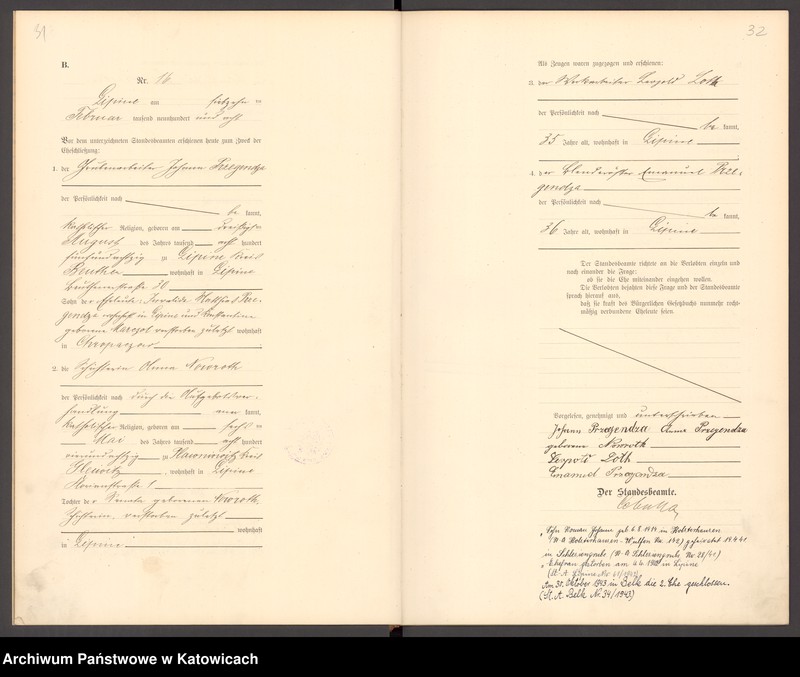 31
B.
Nr. 16
Lipine am siebzehn
Februar tausend neunhundert und acht
Vor dem unterzeichneten Standesbeamten erschienen heute zum Zweck der
Eheschließung:
1. der Grubenarbeiter Johann Przegendza
der Persönlichkeit nach
be kannt,
katholischer Religion, geboren am dreißigsten
August des Jahres tausend acht hundert
fünfundachtzig zu Lipine Kreis
Beuthen, wohnhaft in Lipine
Beuthenerstraße 30
Sohn der Eheleute: Invalide Matthias Prze-
gendza wohnhaft in Lipine und Konstantine
geborene verstorben zuletzt wohnhaft
in Chropaczow
2. die Schusterin Anna Noworoth
der Persönlichkeit nach durch die Aufgebotsver-
handlung aner kannt,
katholischer Religion, geboren am sechsten
Mai des Jahres tausend acht hundert
vierundachtzig zu Kreis
Gleiwitz, wohnhaft in Lipine
1
Tochter der Renata geborenen Noworoth,
verstorben zuletzt
wohnhaft
in Lipine
32
Als Zeugen waren zugezogen und erschienen:
3. der Werkarbeiter Leopold Loth
der Persönlichkeit nach
be kannt,
35 Jahre alt, wohnhaft in Lipine
4. der Blenderöster Emanuel Prze-
gendza
der Persönlichkeit nach
be kannt,
36 Jahre alt, wohnhaft in Lipine
Der Standesbeamte richtete an die Verlobten einzeln und
nach einander die Frage:
ob sie die Ehe miteinander eingehen wollen.
Die Verlobten bejahten diese Frage und der Standesbeamte
sprach hierauf aus,
daß sie kraft des Bürgerlichen Gesetzbuchs nunmehr recht-
mäßig verbundene Eheleute seien.
Vorgelesen, genehmigt und unterschrieben
Johann Przegendza Anna Przegendza
geborene Noworoth
Leopold Loth
Emanuel Przegendza
Der Standesbeamte.
Sohn Johann geb. 6.8.1914 in Holsterhausen
(St. A. Holsterhausen-Wulfen Nr. 142) geheiratet 19.4.41
in (St. A. Nr 28/41)
Ehefrau gestorben am in Lipine
(St. A. Lipine Nr.
Am 30. Oktober 1943 in Belk die 2. Ehe geschlossen.
(St. A. Belk Nr. 34/1943)
Archiwum Państwowe w Katowicach